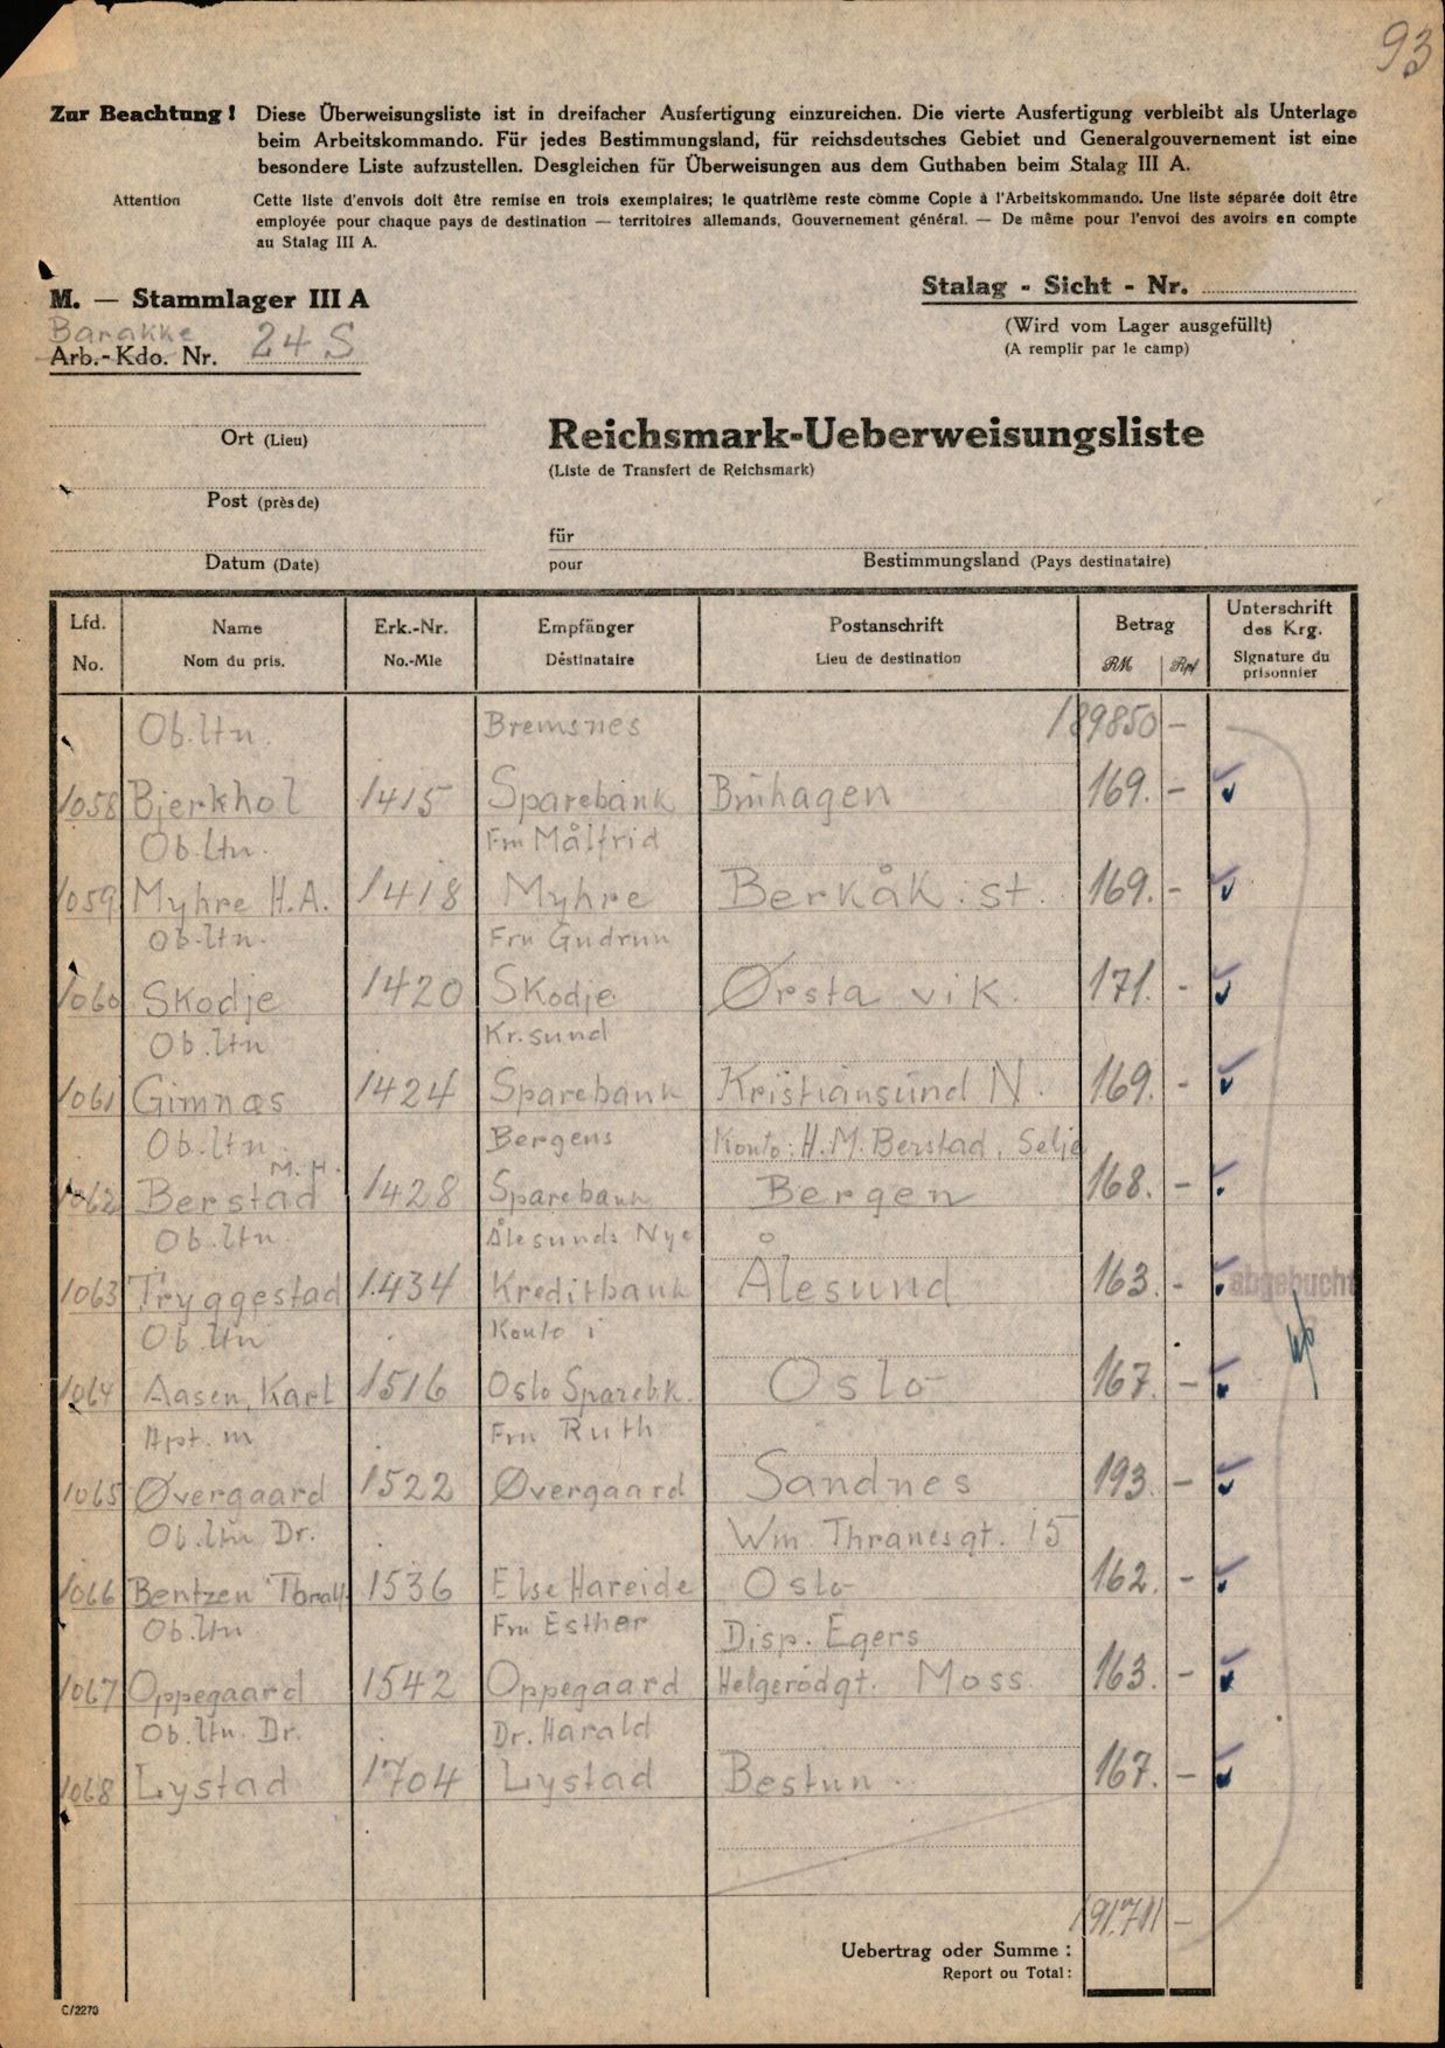 93
Zur Beachtung! Diese Überweisungsliste ist in dreifacher Ausfertigung einzureichen. Die vierte Ausfertigung verbleibt als Unterlage
beim Arbeitskommando. Für jedes Bestimmungsland, für reichsdeutsches Gebiet und Generalgouvernement ist eine
besondere Liste aufzustellen. Desgleichen für Überweisungen aus dem Guthaben beim Stalag III A.
Attention Cette liste d'envois doit être remise en trois exemplaires; le quatrième reste comme Copie à l'Arbeitskommando. Une liste séparée doit être
employée pour chaque pays de destination — territoires allemands, Gouvernement général. — De même pour l'envoi des avoirs en compte
au Stalag III A.
M. — Stammlager III A
Stalag - Sicht - Nr.
(Wird vom Lager ausgefüllt)
(A remplir par le camp)
Barakke
Arb.-Kdo. Nr. 24 S
Ort (Lieu)
Reichsmark-Ueberweisungsliste
(Liste de Transfert de Reichsmark)
Post (près de)
für
pour
Datum (Date)
Bestimmungsland (Pays destinataire)
Lfd. Name Erk.-Nr. Empfänger Postanschrift Betrag Unterschrift des Krg.
No. Nom du pris. No.-Mle Déstinataire Lieu de destination RM Rpf Signature du prisonnier
Ob.ltn. Bremsnes 189850 -
1058 Bjerkhol 1415 Sparebank Bruhagen 169. -
Ob.ltn. Fru Målfrid
1059 Myhre H.A. 1418 Myhre Berkåk. st. 169. -
Ob.ltn. Fru Gudrun
1060 Skodje 1420 Skodje Ørsta vik. 171. -
Ob.ltn Kr.sund
1061 Gimnæs 1424 Sparebank Kristiansund N. 169. -
Ob.ltn. Bergens Konto: H.M. Berstad, Selje
1062 Berstad M.H. 1428 Sparebank Bergen 168. -
Ob.ltn. Ålesunds Nye
1063 Tryggestad 1434 Kreditbank Ålesund 163. - abgebucht
Ob.ltn Konto i
1064 Aasen, Karl 1516 Oslo Sparebk. Oslo 167. -
Hpt. m Fru Ruth
1065 Øvergaard 1522 Øvergaard Sandnes 193. -
Ob.ltn Dr. Wm Thranesgt. 15
1066 Bentzen Thoralf 1536 Else Hareide Oslo 162. -
Ob.ltn Fru Esther Disp. Egers
1067 Oppegaard 1542 Oppegaard Helgerødgt. Moss 163. -
Ob.ltn. Dr. Dr. Harald
1068 Lystad 1704 Lystad Bestun. 167. -
191.711 -
Uebertrag oder Summe :
Report ou Total :
C/2270